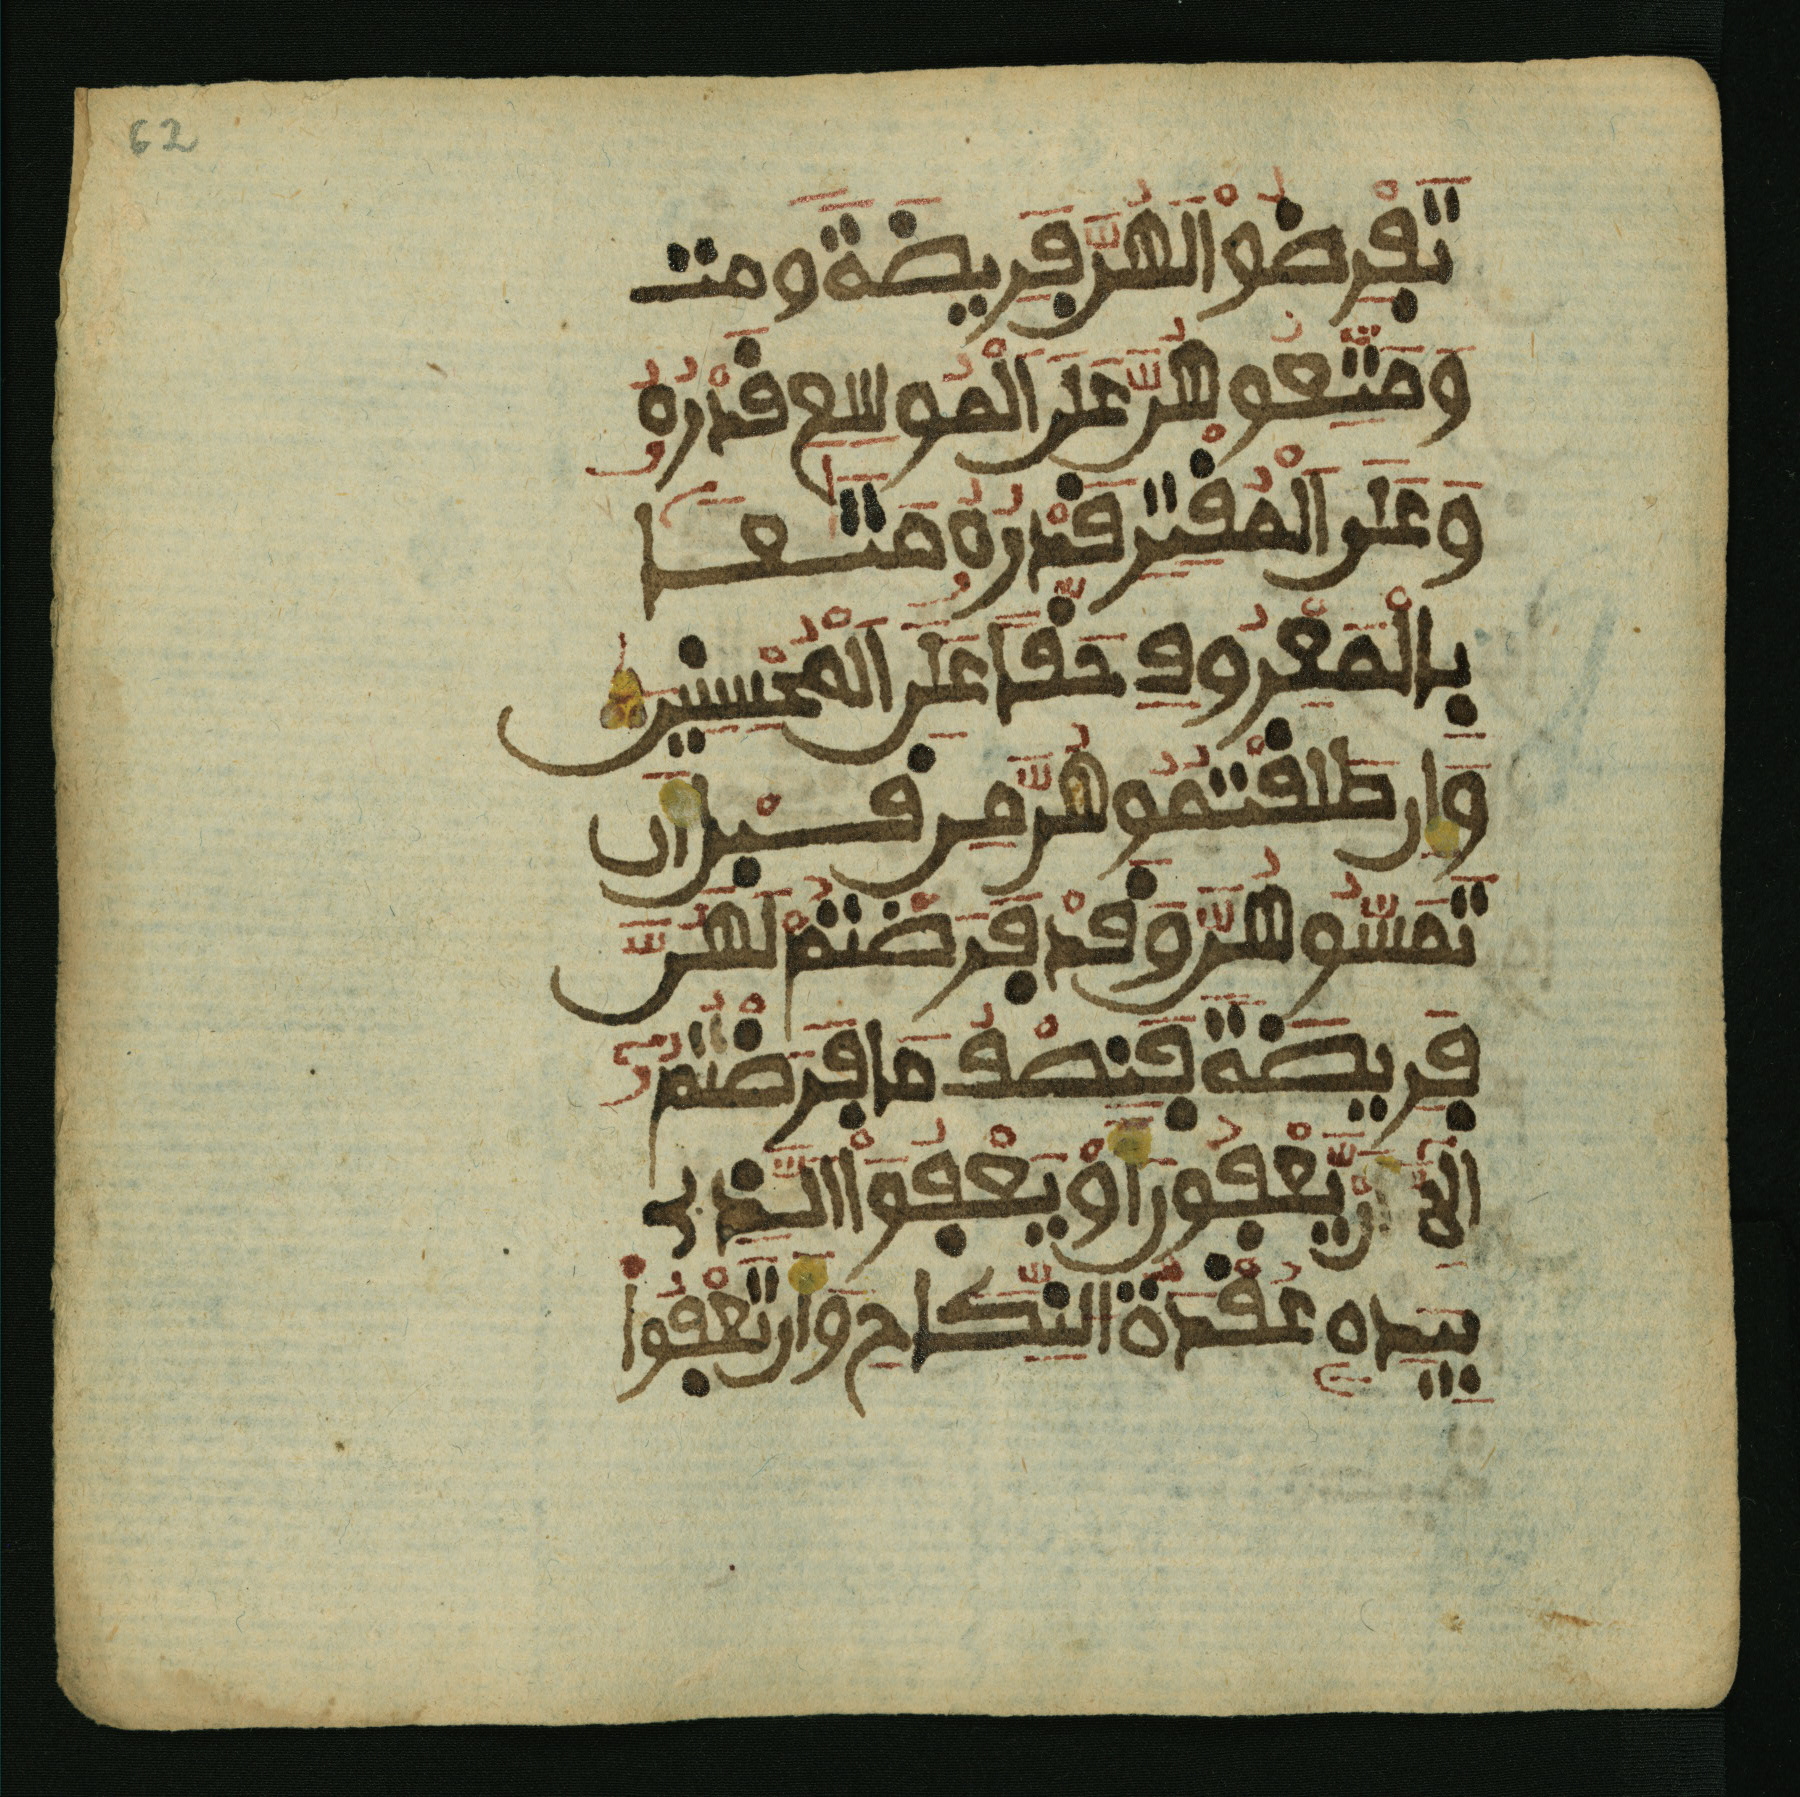 62
تَفْرِضُواْ لَهُنَّ فَرِيضَةً ومتـ
وَمَتِّعُوهُنَّ عَلَى الْمُوسِعِ قَدْرُهُ
وَعَلَى الْمُقْتِرِ قَدْرُهُ مَتَٰعَا
بِالْمَعْرُوفِ حَقًّا عَلَى الْمُحْسِنِينَ
وَإِن طَلَّقْتُمُوهُنَّ مِن قَبْلِ أَن
تَمَسُّوهُنَّ وَقَدْ فَرَضْتُمْ لَهُنَّ
فَرِيضَةً فَنِصْفُ مَا فَرَضْتُمُ
إِلَّا أَنْ يَّعْفُونَ أَوْ يَعْفُوَاْ الَّذِي
بِيَدِهِ عُقْدَةُ النِّكَاحِ وَأَن تَعْفُواْ